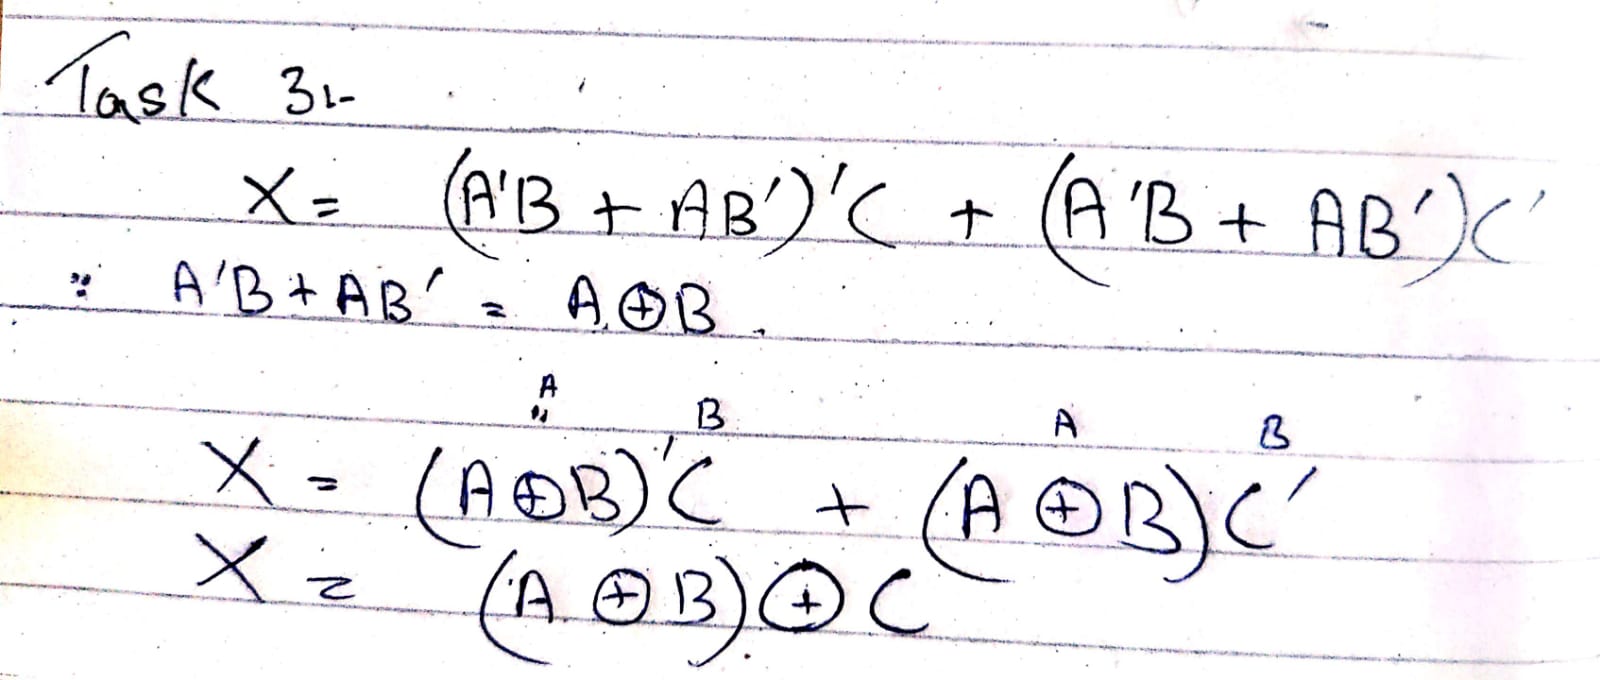 Task 3:-
X = (A'B + AB')'C + (A'B + AB')C'
∵ A'B + AB' = A⊕B.
A B A B
X = (A⊕B)'C + (A⊕B)C'
X = (A⊕B)⊕C